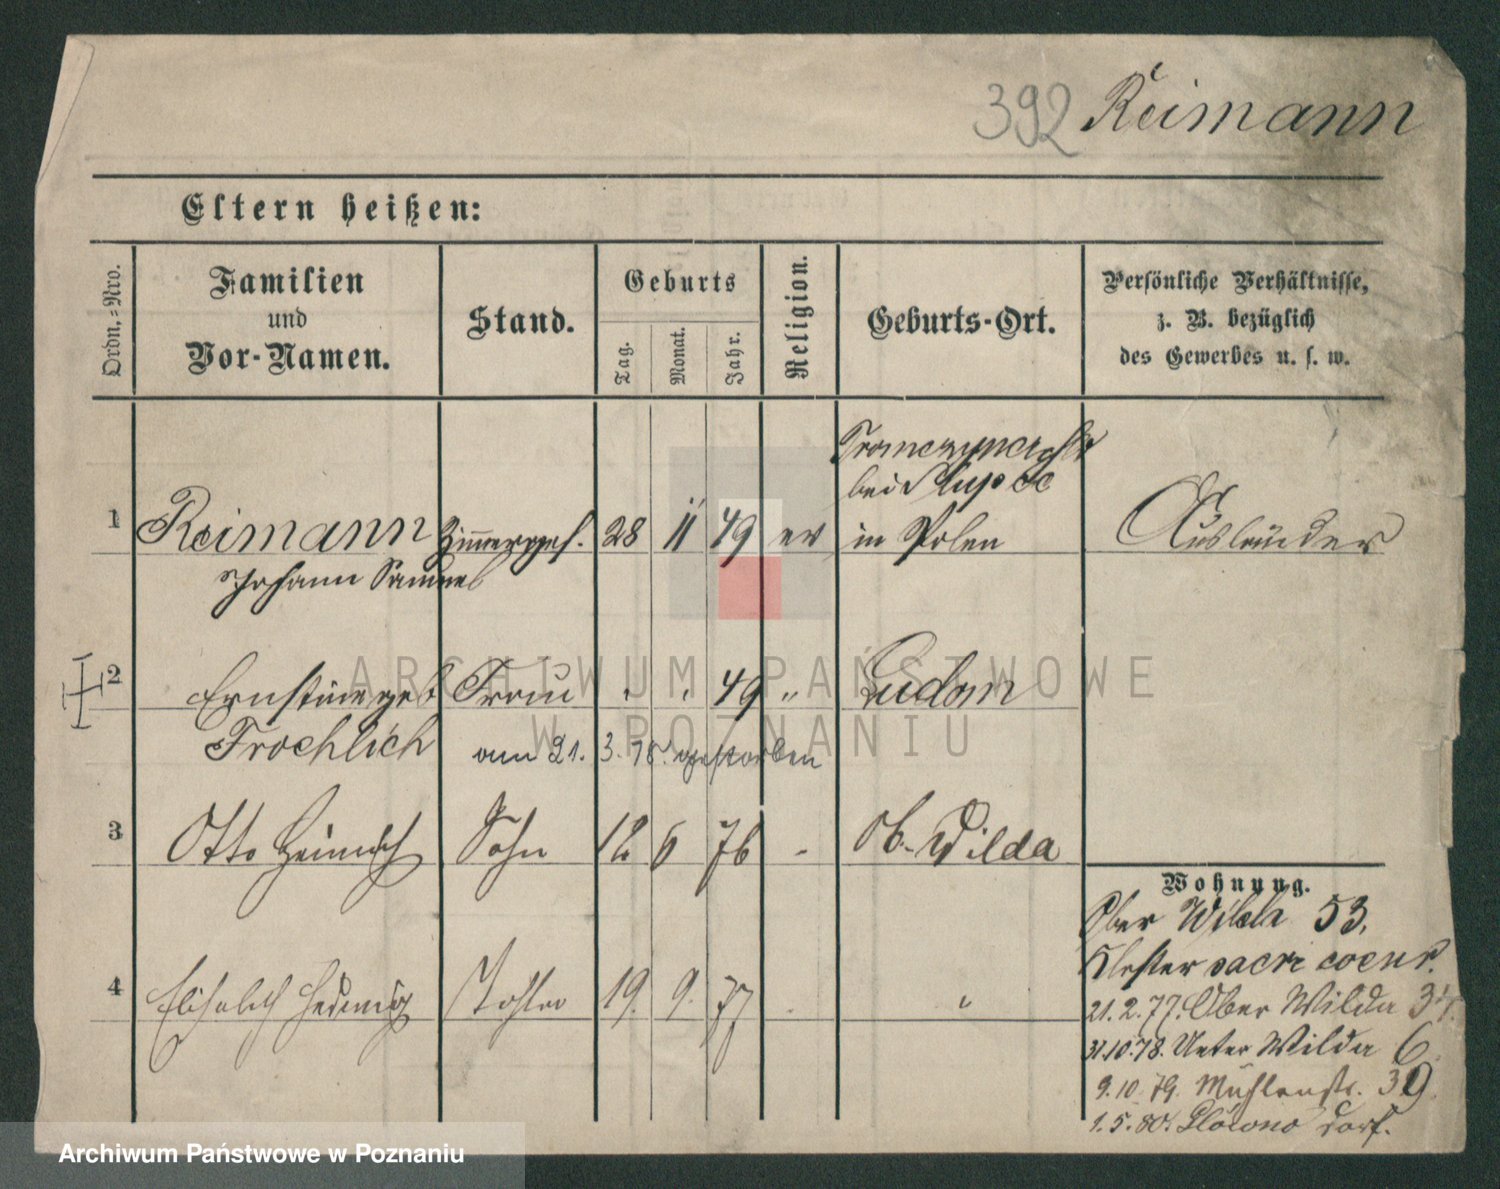 392 Reimann
Eltern heißen:
Ordn.-Nro.
Familien
und
Vor-Namen.
Stand.
Geburts
Tag.
Monat.
Jahr.
Religion.
Geburts-Ort.
Persönliche Verhältnisse,
z. B. bezüglich
des Gewerbes u. s. w.
bei Slupce
1 Reimann Zimmerges. 28 11 49 ev in Polen Ausländer
Johann Samuel
2 Ernstine geb Frau " " 49 " Ludom
Froehlich am 21. 3. 78. gestorben
3 Otto Heinrich Sohn 12 6 76 - Ob. Wilda
4 Elisabeth Hedwig Tochter 19. 9. 77 - "
Wohnung.
Ober Wilda 53.
Kloster sacre coeur.
21.2.77. Ober Wilda
31.10.78. Unter Wilda 6.
9.10.79. Mühlenstr. 39.
1.5.80. Glówno dorf.
ARCHIWUM PAŃSTWOWE
W POZNANIU
Archiwum Państwowe w Poznaniu